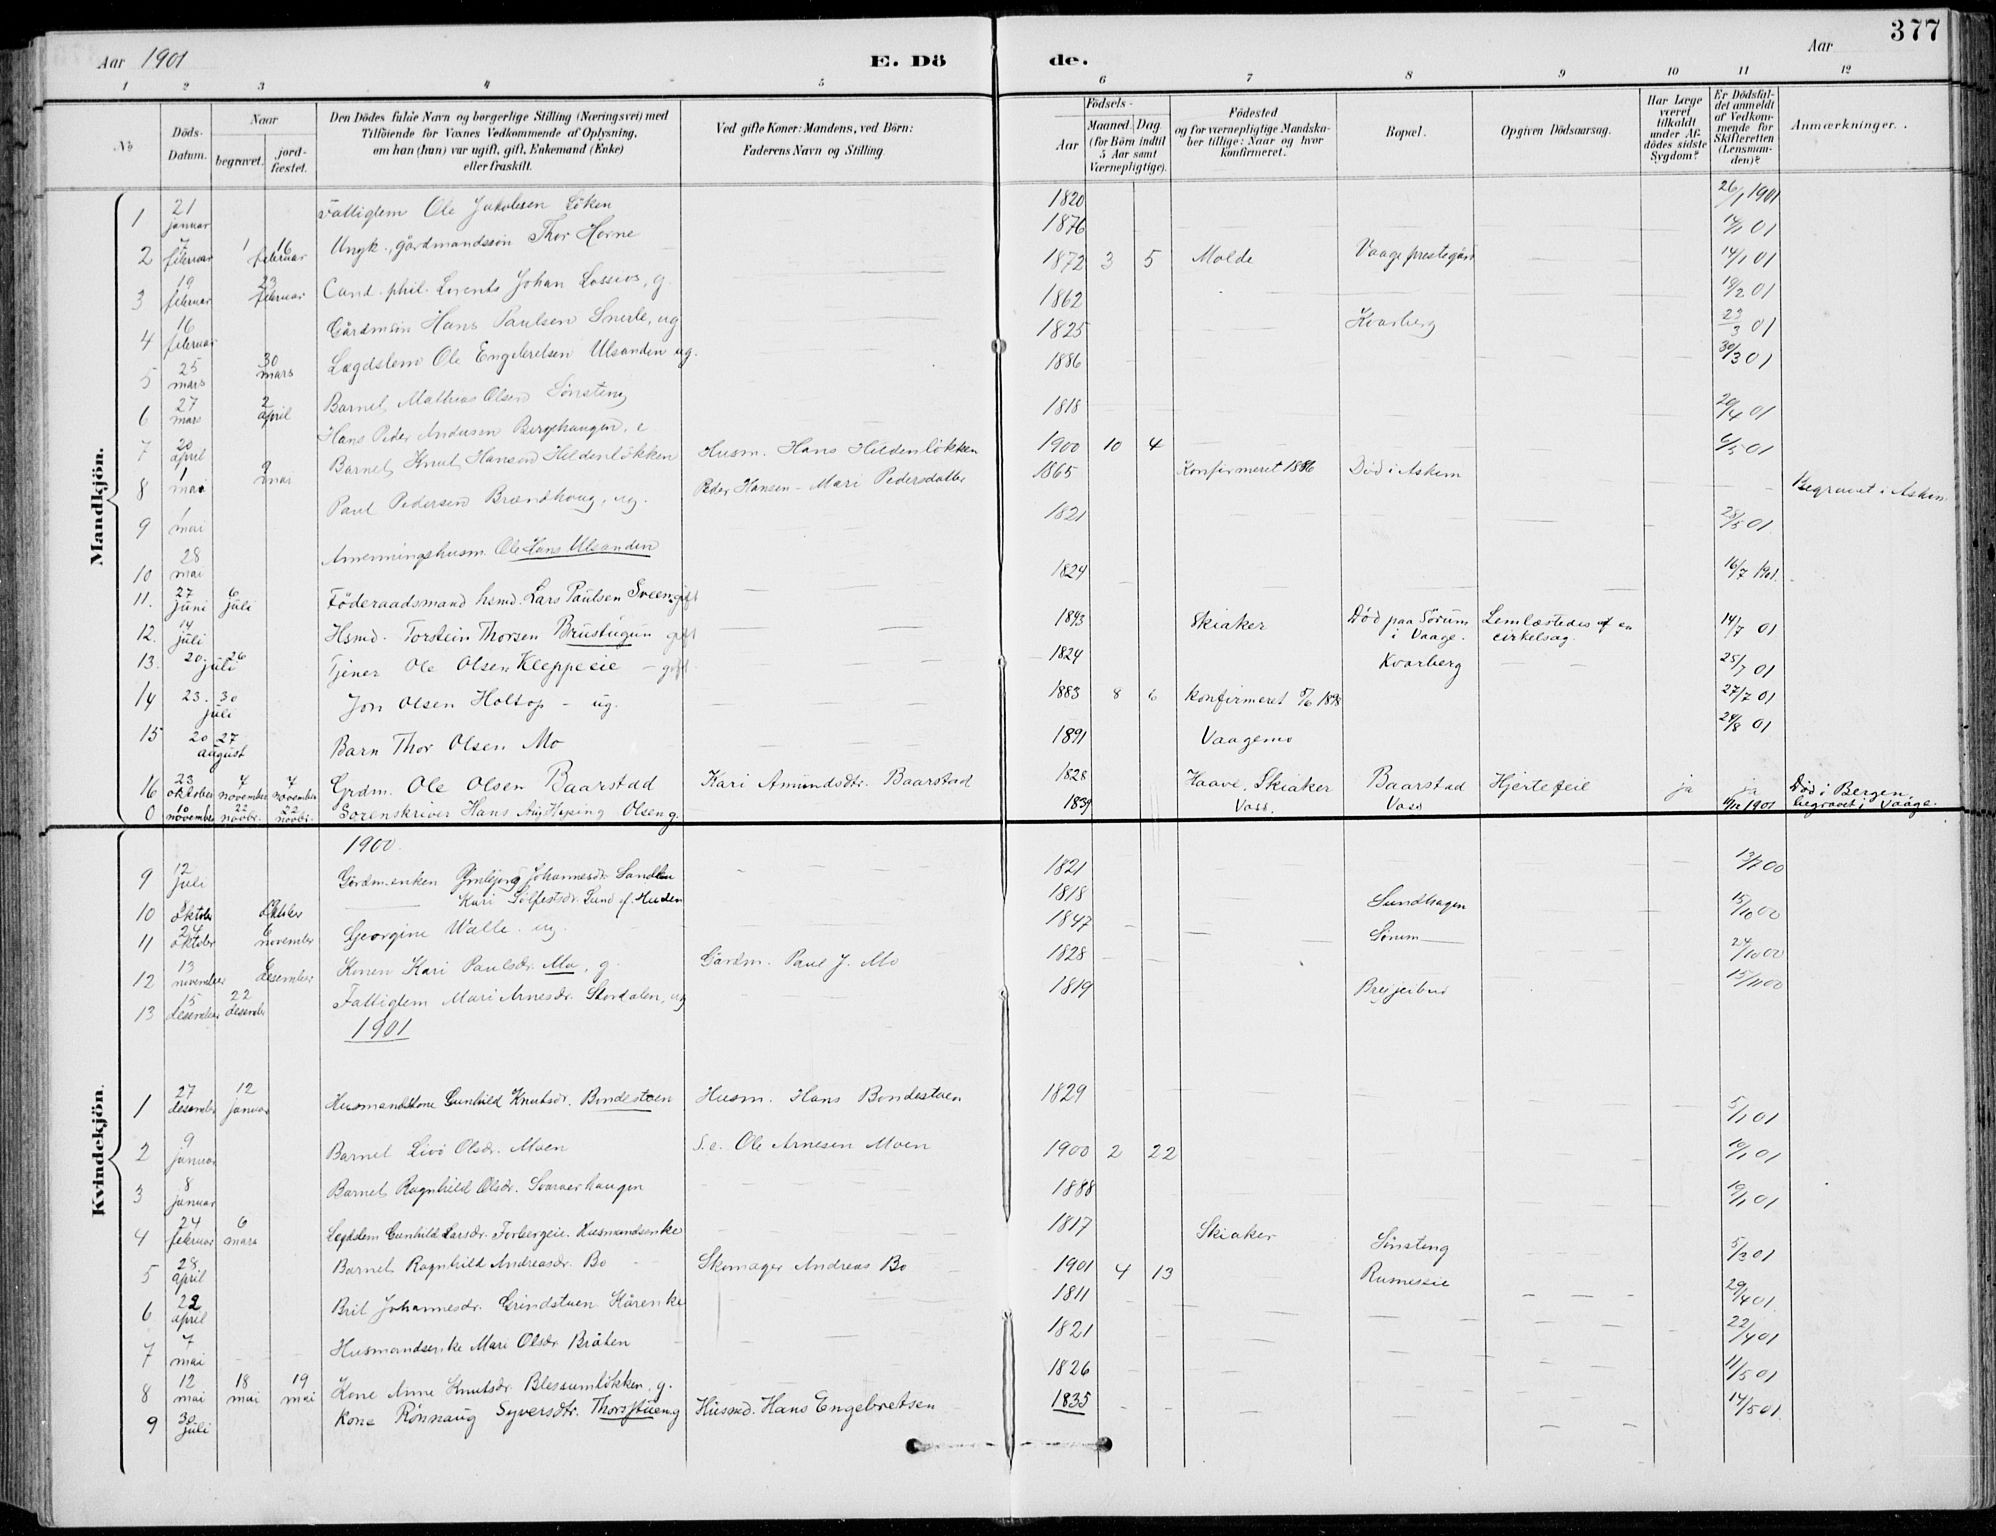 Aar 1901
E. Dö
de.
Aar
377
1 2 3 4 5 6 7 8 9 10 11 12
№
Döds-Datum.
Naar
begravet.
jordfæstet.
Den Dödes fulde Navn og borgerlige Stilling (Næringsvei) med
Tilföiende for Voxnes Vedkommende af Oplysning,
om han (hun) var ugift, gift, Enkemand (Enke)
eller fraskilt.
Ved gifte Koner: Mandens, ved Börn:
Faderens Navn og Stilling
Födsels-
Aar
Maaned. Dag.
(for Börn indtil
5 Aar samt
Værnepligtige).
Födested
og for værnepligtige Mandska-
ber tillige: Naar og hvor
konfirmeret.
Bopæl.
Opgiven Dödsaarsag.
Har Læge
været
tilkaldt
under Af-
dödes sidste
Sygdom?
Er Dödsfal-
det anmeldt
af Vedkom-
mende for
Skifteretten
(Lensman-
den)?
Anmærkninger.
Mandkjön.
1 21 januar Fattiglem Ole Jakobsen Löken 1820 26/1 1901
2 7 februar 1 16 februar Ungk., gårdmandssön Thor Horne 1876 14/1 01
3 19 februar 23 februar Cand. phil. Lorents Johan Lossius, g. 1872 3 5 Molde Vaage prestegård 14/1 01
4 16 februar Gårdmsön Hans Paulsen Snerle, ug 1862 19/2 01
5 25 mars 30 mars Lægdslem Ole Engebretsen Ulsanden ug. 1825 Kvarberg 23/3 01
6 27 mars 2 april Barnet Mathias Olsen Sönsteng 1886 30/3 01
7 20 april Hans Peder Andersen Berghaugen, e. 1818 20/4 01
8 1 mai 9 mai Barnet Knut Hansen Hildenlökken Husm. Hans Hildenlökken 1900 10 4 6/5 01
9 1 mai Paul Pedersen Brændhaug, ug. Peder Hansen - Mari Pedersdatter 1865 Konfirmeret 1886 Död i Askim Begravet i Askim
10 28 mai husm. Ole Hans Ulsanden 1821 28/5 01
11. 27 juni 6 juli Föderaadsmand hsmd. Lars Paulsen Sveen gift 1824 16/7 1901.
12. 14 juli Hsmd. Torstein Thorsen Brustugun gift 1843 Skiaker Död paa Sörum i Vaage. Lemlæstedes af en cirkelsag. 14/7 01
13. 20 26 juli Tjener Ole Olsen Kleppeeie - gift 1824 Kvarberg 25/7 01
14 23. 30 juli Jon Olsen Holtop - ug. 1883 8 6 konfirmeret 5/6 1898 27/7 01
15 20 27 august Barn Thor Olsen Mo 1891 Vaagemo 24/8 01
16 23 oktober 4 november 4 november Grdm. Ole Olsen Baarstad Kari Amundsdtr. Baarstad 1828 Haave, Skiaker Baarstad Hjertefeil ja ja Död i Bergen,
0 10 november 22 novbr. 22 novbr. Sorenskriver Hans Olsen g. 1839 Voss. Voss 1901 begravet i Vaage.
Kvindekjön.
1900.
9 12 juli Gårdm.enken Johannesdr. Sandbu 1821 13/7 00
10 oktober oktober Kari Solfestsdr. Sund af Heiden 1818 Sundhagen 15/10 00
11 24 oktober 6 november Georgine Walle. ug. 1847 Sörum 24/10 00
12 13 november 6 desember Konen Kari Paulsdr. Mo, g. Gårdm. Paul J. Mo 1828 15/11 00
13 15 desember 22 desember Fattiglem Mari Arnesdr. Stordalen, ug 1819
1901
1 27 desember 12 januar Husmandskone Gunhild Knutsdr. Bondestuen Husm. Hans Bondestuen 1829 5/1 01
2 9 januar Barnet Livö Olsdr. Moen S.e. Ole Arnesen Moen 1900 2 22 10/1 01
3 8 januar Barnet Ragnhild Olsdr. Svarverhaugen 1888 10/1 01
4 24 februar 6 mars Legdslem Gunhild Larsdr. Forbergeie. Husmandsenke 1817 Skiaker Sönsteng 5/3 01
5 28 april Barnet Ragnhild Andreasdr. Bo Skomager Andreas Bo 1901 4 13 29/4 01
6 22 april Brit Johannesdr. Grindstuen. Kårenke 1811 22/4 01
7 7 mai Husmandsenke Mari Olsdr. Bråten 1821 11/5 01
8 12 mai 18 mai 19 mai Kone Anne Knutsdr. Blessumlökken, g. 1826 14/5 01.
9 30 juli Kone Rönnaug Syversdtr. Thorsstuen g Husmd. Hans Engebretsen 1835